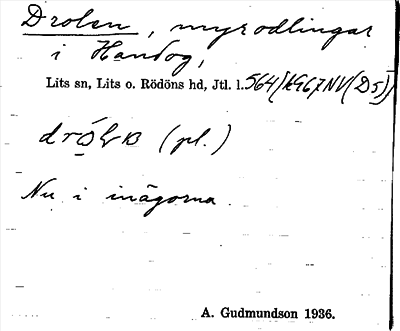 Drolen, myrodlingar
i Handog,
Lits sn, Lits o. Rödöns hd, Jtl. l. 564/1967 NV (D5)
(pl.)
Nu i inägorna.
A. Gudmundson 1936.